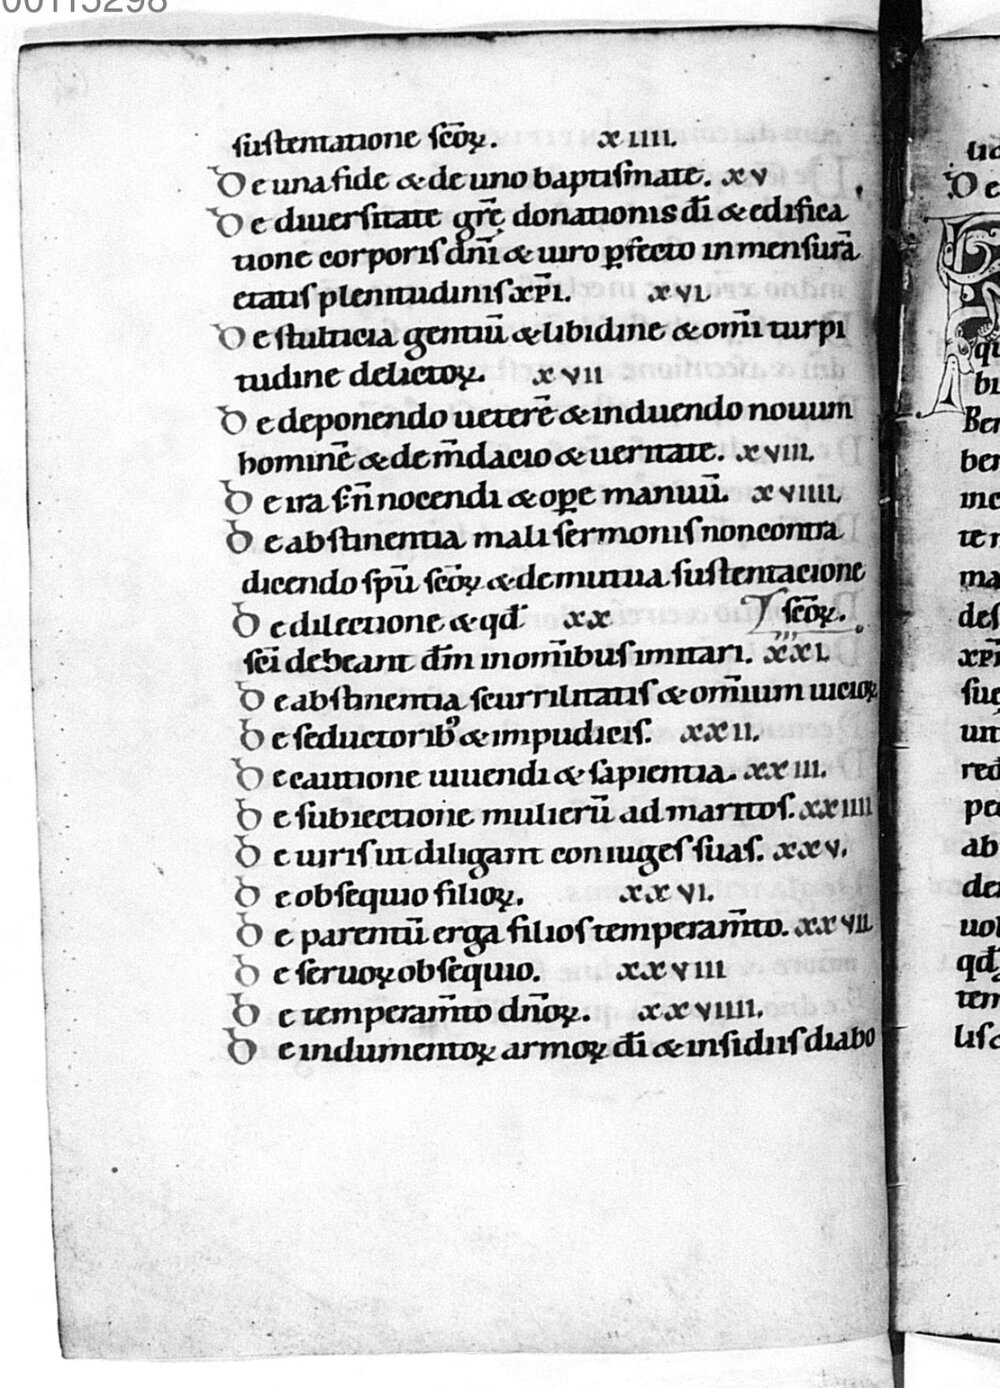 00115298
sustentatione scōꝝ. xiiii.
De una fide & de uno baptismate. xv
De diuersitate grē donationis dī & edifica
tione corporis dnī & uiro ꝑfecto in mensurā
etatis plenitudinis xp̄i. xvi
De stulticia gentiū & libidine & om̄i turpi
tudine delictoꝝ. xvii
De deponendo ueterē & induendo nouum
hominē & de m̄dacio & ueritate. xviii.
De ira & n̄ nocendi & oꝑe manuū. xviiii.
De abstinentia mali sermonis non contra
dicendo spū scōꝝ & de mutua sustentacione
scōꝝ.
De dilectione & qđ xx
sci debeant dm̄ in om̄ibus imitari. xxi
De abstinentia scurrilitatis & om̄ium uicioꝝ
De seductorib; & impudicis. xxii.
De cautione uiuendi & sapientia. xxiii.
De subiectione mulierū ad maritos. xxiiii
De uiris ut diligant coniuges suas. xxv.
De obsequio filioꝝ. xxvi.
De parentū erga filios temperam̄to. xxvii
De seruoꝝ obsequio. xxviii
De temperam̄to dn̄oꝝ. xxviiii.
De indumentoꝝ armoꝝ dī & insidiis diabo